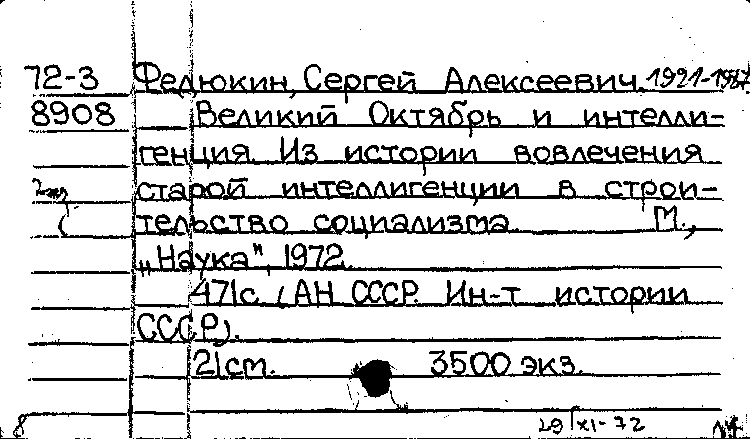 72-3 Федюкин, Сергей Алексеевич.
8908 Великий Октябрь и интелли-
генция. Из истории вовлечения
старой интеллигенции в строи-
тельство социализма М.,
„Наука", 1972.
471с. (АН СССР. Ин-т истории
СССР).
21см. 3500 экз.
8 29/XI-72